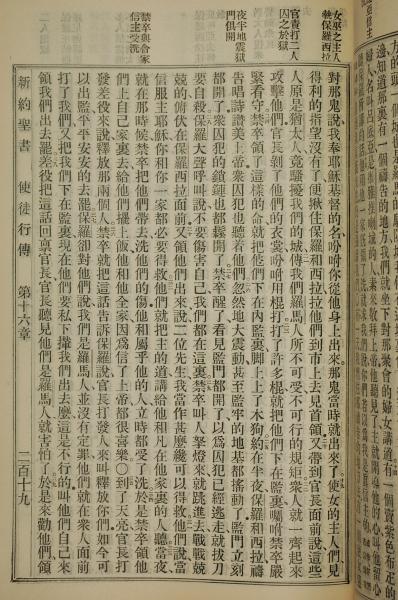 女巫之主人
執保羅西拉
官責打二人
囚之於獄
夜半地震獄
門俱開
禁卒與合家
信主受洗
對那鬼說我奉耶穌基督的名吩咐你從他身上出來那鬼當時就出來了使女的主人們見
得利的指望沒有了便揪住保羅和西拉拉他們到市上去見首領又帶到官長面前說這些
人原是猶太人竟騷擾我們的城傳我們羅馬人所不可受不可行的規矩衆人就一齊起來
攻擊他們官長剝了他們的衣裳吩咐用棍打打了許多棍就把他們下在監裏囑咐禁卒嚴
緊看守禁卒領了這樣的命就把他們下在內監裏脚上上了木狗約在半夜保羅和西拉禱
告唱詩讚美上帝衆囚犯也聽着他們忽然地大震動甚至監牢的地基都搖動了監門立刻
都開了衆囚犯的鎖鏈也都鬆開了禁卒醒了看見監門都開了以爲囚犯已經逃走就拔刀
要自殺保羅大聲呼叫說不要傷害自己我們都在這裏禁卒叫人拏燈來就跳進去戰戰兢
兢的俯伏在保羅西拉面前又領他們出來說二位先生我當作甚麽纔可以得救他們說當
信服主耶穌你和你一家都必要得救他們就把主的道講給他和凡在他家裏的人聽當夜
就在那時候禁卒把他們帶去洗他們的傷他和屬乎他的人立時都受了洗於是禁卒領他
們上自己家裏去給他們擺上飯他和他全家因爲信了上帝都很喜樂○到了天亮官長打
發差役來說釋放那兩個人禁卒就把這話告訴保羅說官長打發人來叫釋放你們如今可
以出監平平安安的去罷保羅卻對他們說我們是羅馬人並沒有定罪他們就在衆人面前
打了我們又把我們下在監裏現在他們要私下攆我們出去麽這是不行的叫他們自己來
領我們出去罷差役把這話回稟官長官長聽見他們是羅馬人就害怕了於是來勸他們領
新約聖書　使徒行傳　第十六章　二百十九